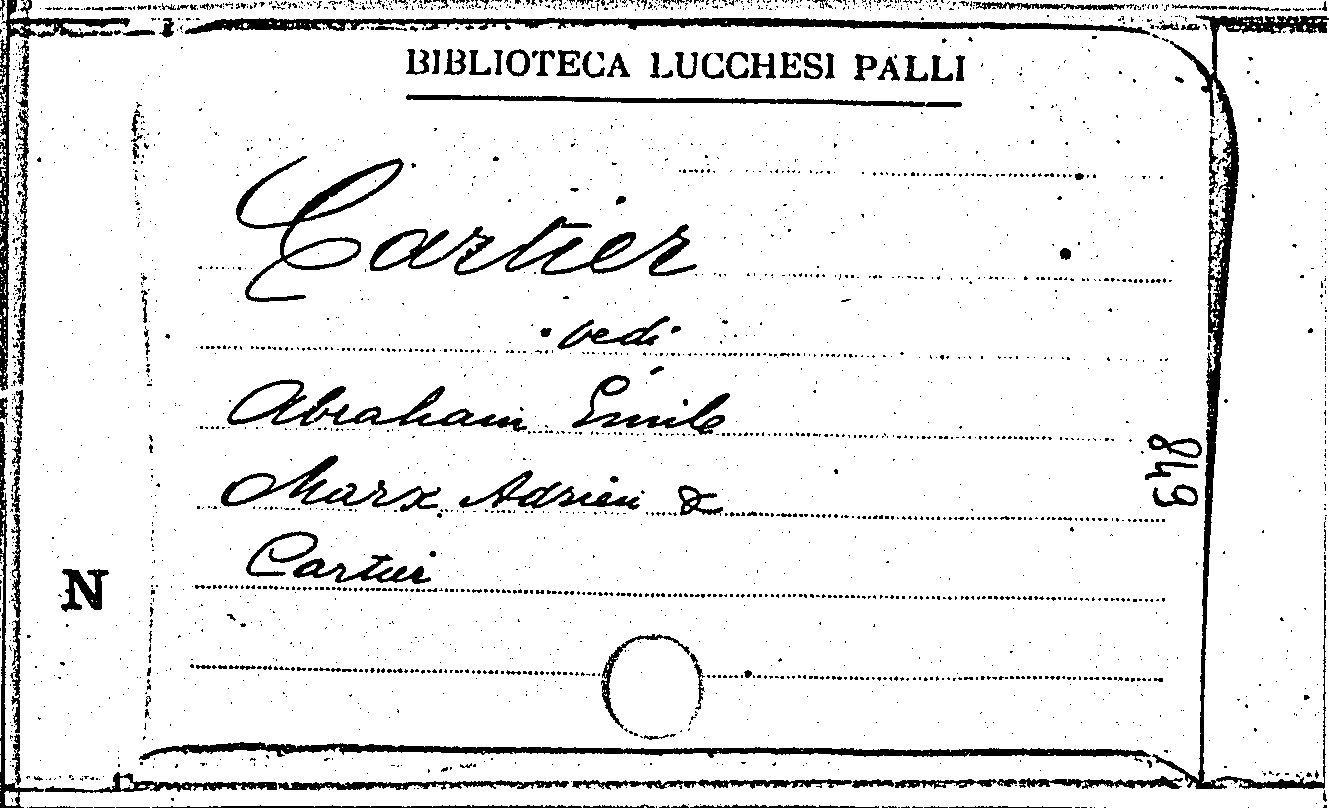 BIBLIOTECA LUCCHESI PALLI
Cartier
vedi
Abraham Émile
Marx Adrien &
Cartier
849
N